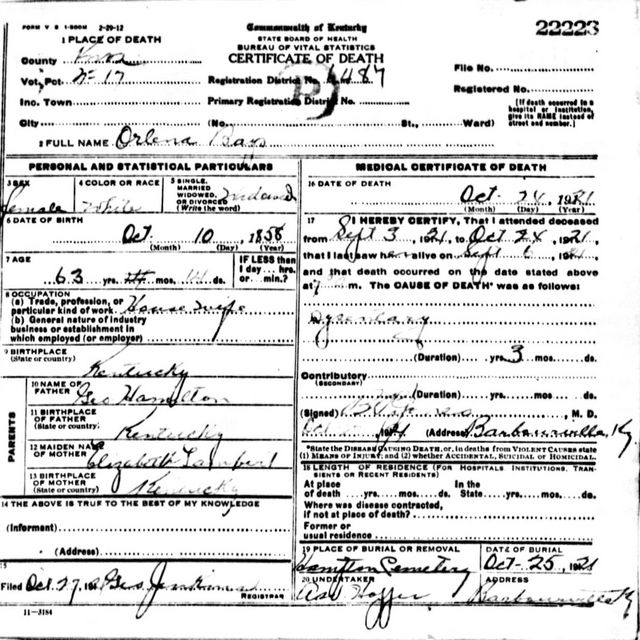 FORM V S 1-500M 2-29-12
Commonwealth of Kentucky
22223
STATE BOARD OF HEALTH
BUREAU OF VITAL STATISTICS
CERTIFICATE OF DEATH
1 PLACE OF DEATH
County Knox
Vot. Pct. No 17
Inc. Town
City
Registration District No. 6487
Primary Registration District No.
(No. St., Ward)
File No.
Registered No.
[If death occurred in a
hospital or institution,
give its NAME instead of
street and number.]
2 FULL NAME Orlena Bays
PERSONAL AND STATISTICAL PARTICULARS
3 SEX
female
4 COLOR OR RACE
White
5 SINGLE,
MARRIED
WIDOWED,
OR DIVORCED
(Write the word)
Widowed
6 DATE OF BIRTH
Oct. 10, 1858
(Month) (Day) (Year)
7 AGE
63 yrs. mos. ds.
IF LESS than
1 day... hrs.
or min.?
8 OCCUPATION
(a) Trade, profession, or
particular kind of work House wife
(b) General nature of industry
business or establishment in
which employed (or employer)
9 BIRTHPLACE
(State or country)
Kentucky
PARENTS
10 NAME OF
FATHER Geo Hamilton
11 BIRTHPLACE
OF FATHER
(State or country)
Kentucky
12 MAIDEN NAME
OF MOTHER Elizabeth
13 BIRTHPLACE
OF MOTHER
(State or country)
Kentucky
14 THE ABOVE IS TRUE TO THE BEST OF MY KNOWLEDGE
(Informant)
(Address)
15
Filed Oct. 27, 19 Geo
REGISTRAR
11-3184
MEDICAL CERTIFICATE OF DEATH
16 DATE OF DEATH
Oct 24 1921
(Month) (Day) (Year)
17 I HEREBY CERTIFY, That I attended deceased
from Sept 3, 1921, to Oct 24, 1921,
that I last saw her alive on Sept 1921
and that death occurred on the date stated above
at 7 m. The CAUSE OF DEATH* was as follows:
(Duration) yrs. 3 mos. ds.
Contributory
(SECONDARY)
(Duration) yrs. mos. ds.
(Signed) , M. D.
(Address) Barbourville, Ky
*State the DISEASE CAUSING DEATH, or, in deaths from VIOLENT CAUSES state
(1) MEANS OF INJURY; and (2) whether ACCIDENTAL, SUICIDAL or HOMICIDAL.
18 LENGTH OF RESIDENCE (FOR HOSPITALS INSTITUTIONS, TRAN-
SIENTS OR RECENT RESIDENTS)
At place
of death yrs. mos. ds.
In the
State yrs. mos. ds.
Where was disease contracted,
if not at place of death?
Former or
usual residence
19 PLACE OF BURIAL OR REMOVAL
Hampton Cemetery
DATE OF BURIAL
Oct-25, 1921
20 UNDERTAKER
ADDRESS
Barbourville Ky